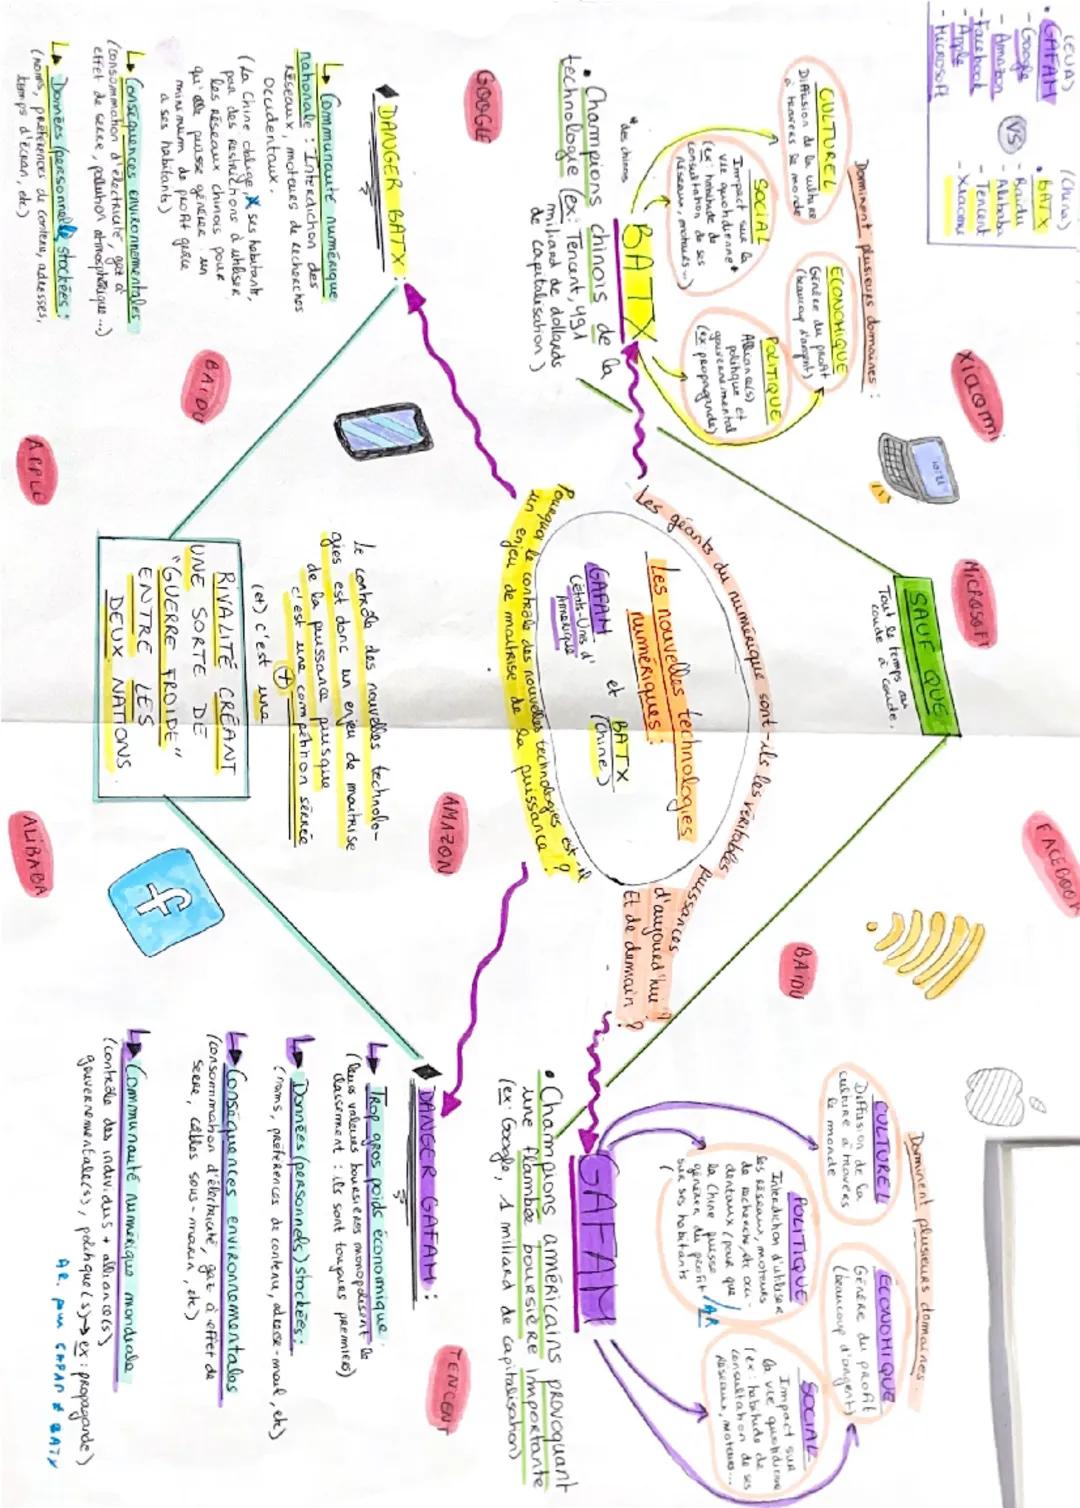 (EUA)
• GAFAM
- Google
- Amazon
- Facebook
- Apple
- Microsoft
VS
(Chine)
• BATX
- Baidu
- Alibaba
- Tencent
- Xiaomi
Xiaomi
MICROSOFT
FACEBOOK
Dominent plusieurs domaines :
CULTUREL
Diffusion de la culture
à travers le monde
ECONOMIQUE
Génère du profit
(beaucoup d'argent)
SOCIAL
Impact sur la
vie quotidienne*
(ex: habitude de
consultation de ses
réseaux, moteurs...)
POLITIQUE
Alliance(s)
politique et
gouvernemental
(ex propagande)
*des chinois
BATX
• Champions chinois de la
technologie (ex: Tencent, 491
milliard de dollards
de capitalisation)
SAUF QUE
Tout le temps au
coude à coude.
BAIDU
Dominent plusieurs domaines
CULTUREL
Diffusion de la
culture à travers
le monde
ÉCONOMIQUE
Génère du profit
(beaucoup d'argent)
POLITIQUE
Interdiction d'utiliser
les réseaux, moteurs
de recherche, etc occi-
dentaux (pour que
la Chine puisse
générer du profit /AR
sur ses habitants
SOCIAL
Impact sur
la vie quotidienne
(ex: habitude de
consultation de ses
réseaux, moteurs...
GAFAM
• Champions américains provoquant
une flambée boursière importante
(ex: Google, 1 miliard de capitalisation)
Les géants du numérique sont-ils les véritables puissances
d'aujourd'hui ?
Et de demain ?
Les nouvelles technologies
numériques :
GAFAM et BATX
(états-Unis d' (Chine)
Amérique)
Pourquoi le contrôle des nouvelles technologies est-il
un enjeu de maitrise de la puissance ?
GOOGLE
AMAZON
TENCENT
DANGER BATX :
↳ Communauté numérique
nationale : Interdiction des
réseaux, moteurs de recherches
occidentaux.
(La Chine oblige, à ses habitants,
par des restrictions d'utiliser
les réseaux chinois pour
qu'elle puisse générer un
minimum de profit grâce
à ses habitants)
↳ Conséquences environnementales
(consommation d'électricité, gaz à
effet de serre, pollution atmosphérique...)
↳ Données (personnelles) stockées :
(noms, préférences de contenu, adresses,
temps d'écran, etc)
BAIDU
APPLE
Le contrôle des nouvelles technolo-
gies est donc un enjeu de maitrise
de la puissance puisque
c'est une compétition serrée
(et) c'est une +
RIVALITÉ CRÉANT
UNE SORTE DE
"GUERRE FROIDE"
ENTRE LES
DEUX NATIONS.
f
ALIBABA
DANGER GAFAM :
↳ Trop gros poids économique
(leurs valeurs boursières monopolisent le
classement : ils sont toujours premiers)
↳ Données (personnels) stockées :
(noms, préférences de contenu, adresse-mail, etc)
↳ Conséquences environnementales
(consommation d'électricité, gaz à effet de
serre, câbles sous-marin, etc)
↳ Communauté numérique mondiale
(contrôle des individus + alliance(s)
gouvernementale(s), politique(s) → ex : propagande)